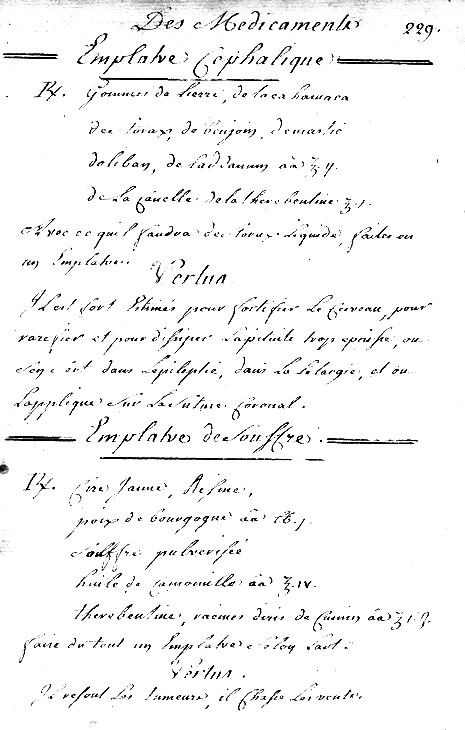 Des Medicaments 229.
Emplatre Cephalique
Rx. Gommes de lierre, de tacahamaca
de storax, de benjoin, de mastic
doliban, de Laddanum āā ʒ.ij.
de La Canelle de la therebentine ʒ.j.
avec ce qu'il faudra de storax Liquide, faites en
un Emplatre.
Vertus
Il est fort Estimés pour fortifier Le Cerveau, pour
rarefier et pour dissiper La pituite trop epaisse, ou
dans Lepilepsie, dans La Letargie, et on
Lapplique sur La suture Coronal.
Emplatre de Souffre.
Rx. Cire Jaune, Resine,
poix de bourgogne āā ℔.j.
Souffre pulverisée
huile de Camomille āā ʒ.iv.
therebentine, racines diris de Cumin āā ʒ.j.
faire du tout un Emplatre
Vertus.
Il resout Les tumeurs, il Chasse Les vents.